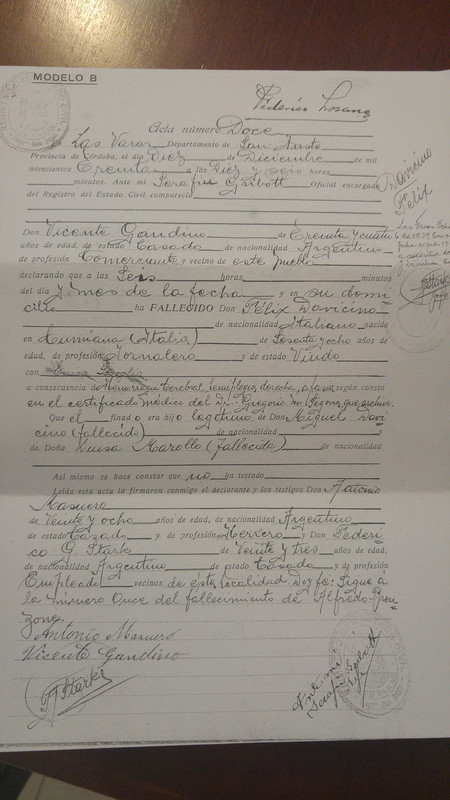 MODELO B
Federico Lozano
Acta número Doce
En Las Varas Departamento de San Justo
Provincia de Córdoba, el día Diez de Diciembre de mil
novecientos Treinta a las Diez y horas
minutos. Ante mí Serafín Gribott Oficial encargado
del Registro del Estado Civil compareció
Davicino
Felix
Don Vicente Gandino de Treinta y cuatro
años de edad, de estado Casado de nacionalidad Argentino
de profesión Comerciante y vecino de este pueblo
declarando que a las Seis horas minutos
del día y mes de la fecha y en su domi
cilio ha FALLECIDO Don Félix Davicino
de nacionalidad Italiano nacido
en Cumiana (Italia) de Sesenta y ocho años de
edad, de profesión Jornalero y de estado Viudo
con
a consecuencia de Hemorragia Cerebral, hemiplegia derecha, afasia según consta
en el certificado médico del Dr. Gregorio M. Segura, que archivo.
Que el finado era hijo legítimo de Don Miguel Davi
cino (fallecido) de nacionalidad y
de Doña Luisa Marollo (fallecida) de nacionalidad
Así mismo se hace constar que no ha testado
Leída esta acta la firmaron conmigo el declarante y los testigos Don Antonio
Masuero
de Veinte y ocho años de edad, de nacionalidad Argentino
de estado Casado y de profesión Herrero y Don Federi
co G. Starke de Veinte y tres años de edad,
de nacionalidad Argentino de estado Casado y de profesión
Empleado vecinos de esta localidad. Doy fe: Sigue a
la número Once del fallecimiento de Alfredo
Antonio Masuero
Vicente Gandino
Starke
Ante mí
Serafín Gribott